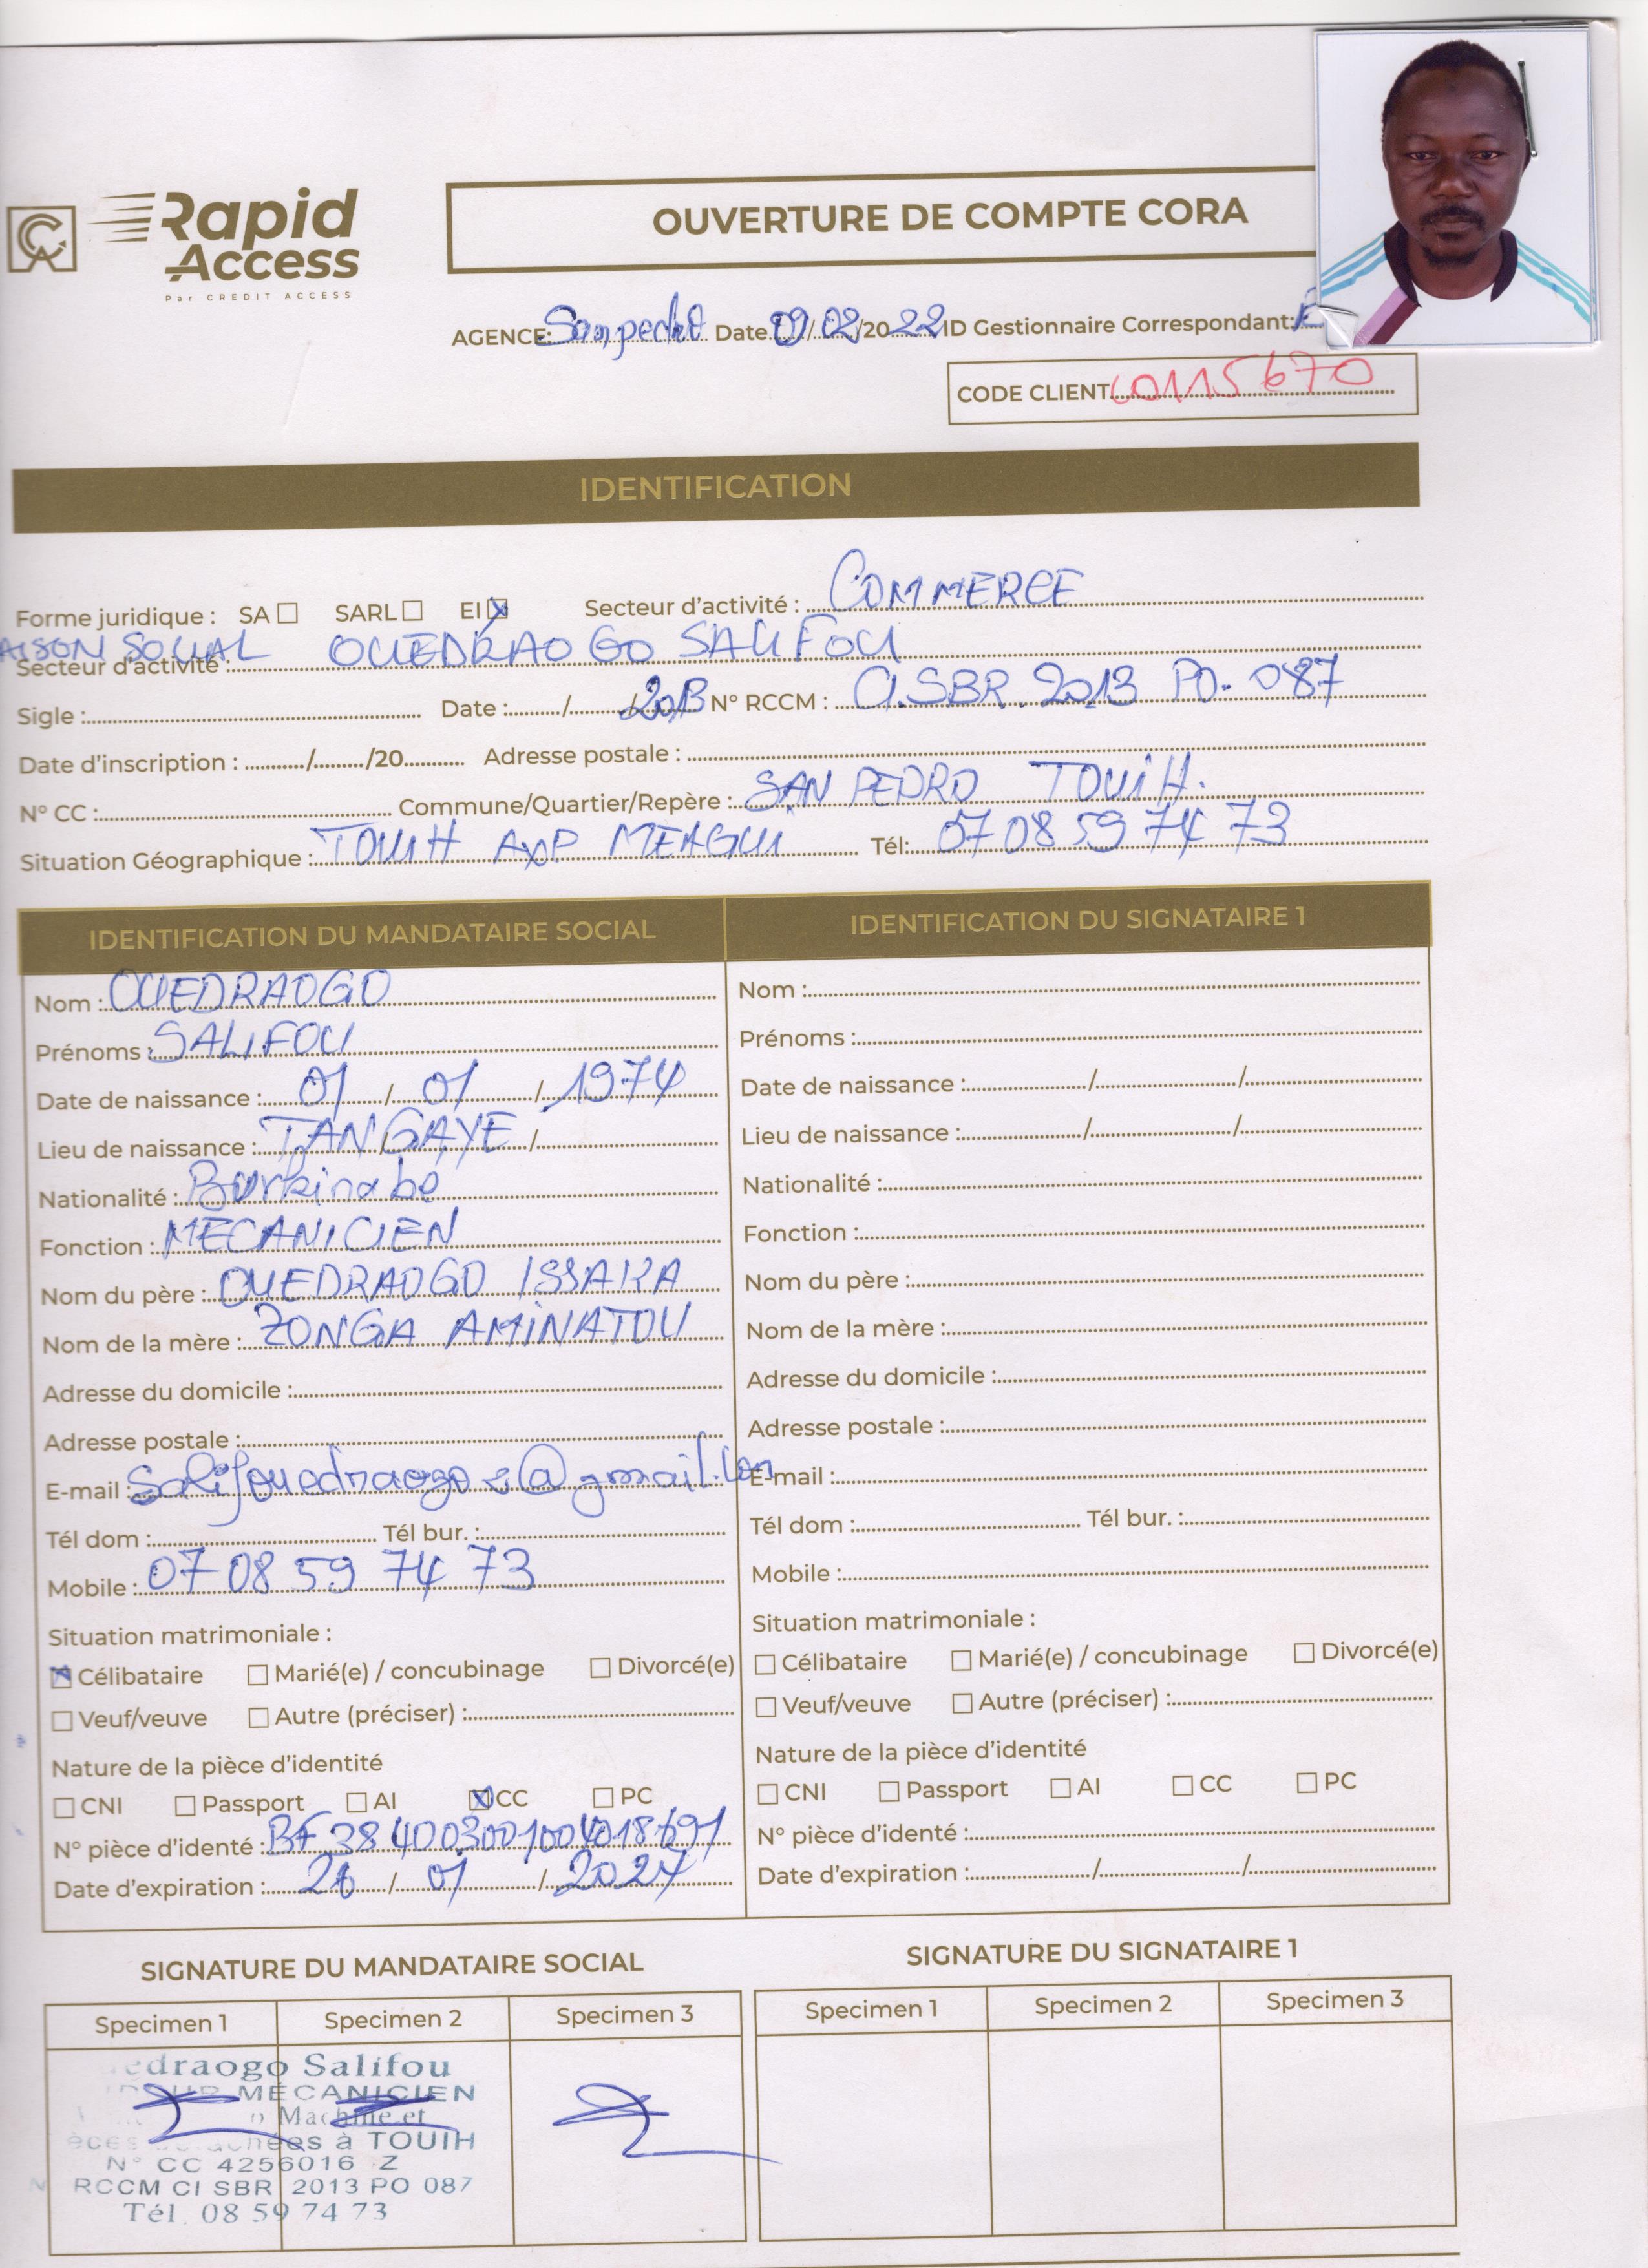 Rapid
Access
Par CREDIT ACCESS
OUVERTURE DE COMPTE CORA
AGENCE: Sanpedro Date 09/02/2022 ID Gestionnaire Correspondant:
CODE CLIENT 60115670
IDENTIFICATION
Forme juridique : SA SARL EI Secteur d'activité : COMMERCE
AISON SOCIAL OUEDRAOGO SALIFOU
Secteur d'activité :
Sigle : Date : / /2013 N° RCCM : CI.SBR.2013 PO. 087
Date d'inscription : / /20 Adresse postale :
N° CC : Commune/Quartier/Repère : SAN PEDRO TOUIH.
Situation Géographique : TOUIH AXP MEAGUI Tél: 07 08 59 74 73
IDENTIFICATION DU MANDATAIRE SOCIAL
Nom : OUEDRAOGO
Prénoms : SALIFOU
Date de naissance : 01 / 01 / 1974
Lieu de naissance : TANGAYE /
Nationalité : Burkinabe
Fonction : MECANICIEN
Nom du père : OUEDRAOGO ISSAKA
Nom de la mère : ZONGA AMINATOU
Adresse du domicile :
Adresse postale :
E-mail : @gmail.com
Tél dom : Tél bur. :
Mobile : 07 08 59 74 73
Situation matrimoniale :
Célibataire Marié(e) / concubinage Divorcé(e)
Veuf/veuve Autre (préciser) :
Nature de la pièce d'identité
CNI Passport AI CC PC
N° pièce d'identé : BF 384003001004018691
Date d'expiration : 26 / 01 / 2027
IDENTIFICATION DU SIGNATAIRE 1
Nom :
Prénoms :
Date de naissance : / /
Lieu de naissance : / /
Nationalité :
Fonction :
Nom du père :
Nom de la mère :
Adresse du domicile :
Adresse postale :
E-mail :
Tél dom : Tél bur. :
Mobile :
Situation matrimoniale :
Célibataire Marié(e) / concubinage Divorcé(e)
Veuf/veuve Autre (préciser) :
Nature de la pièce d'identité
CNI Passport AI CC PC
N° pièce d'identé :
Date d'expiration : / /
SIGNATURE DU MANDATAIRE SOCIAL
Specimen 1 Specimen 2 Specimen 3
edraogo Salifou
MÉCANICIEN
Machine et
à TOUIH
N° CC 4256016 Z
RCCM CI SBR 2013 PO 087
Tél. 08 59 74 73
SIGNATURE DU SIGNATAIRE 1
Specimen 1 Specimen 2 Specimen 3